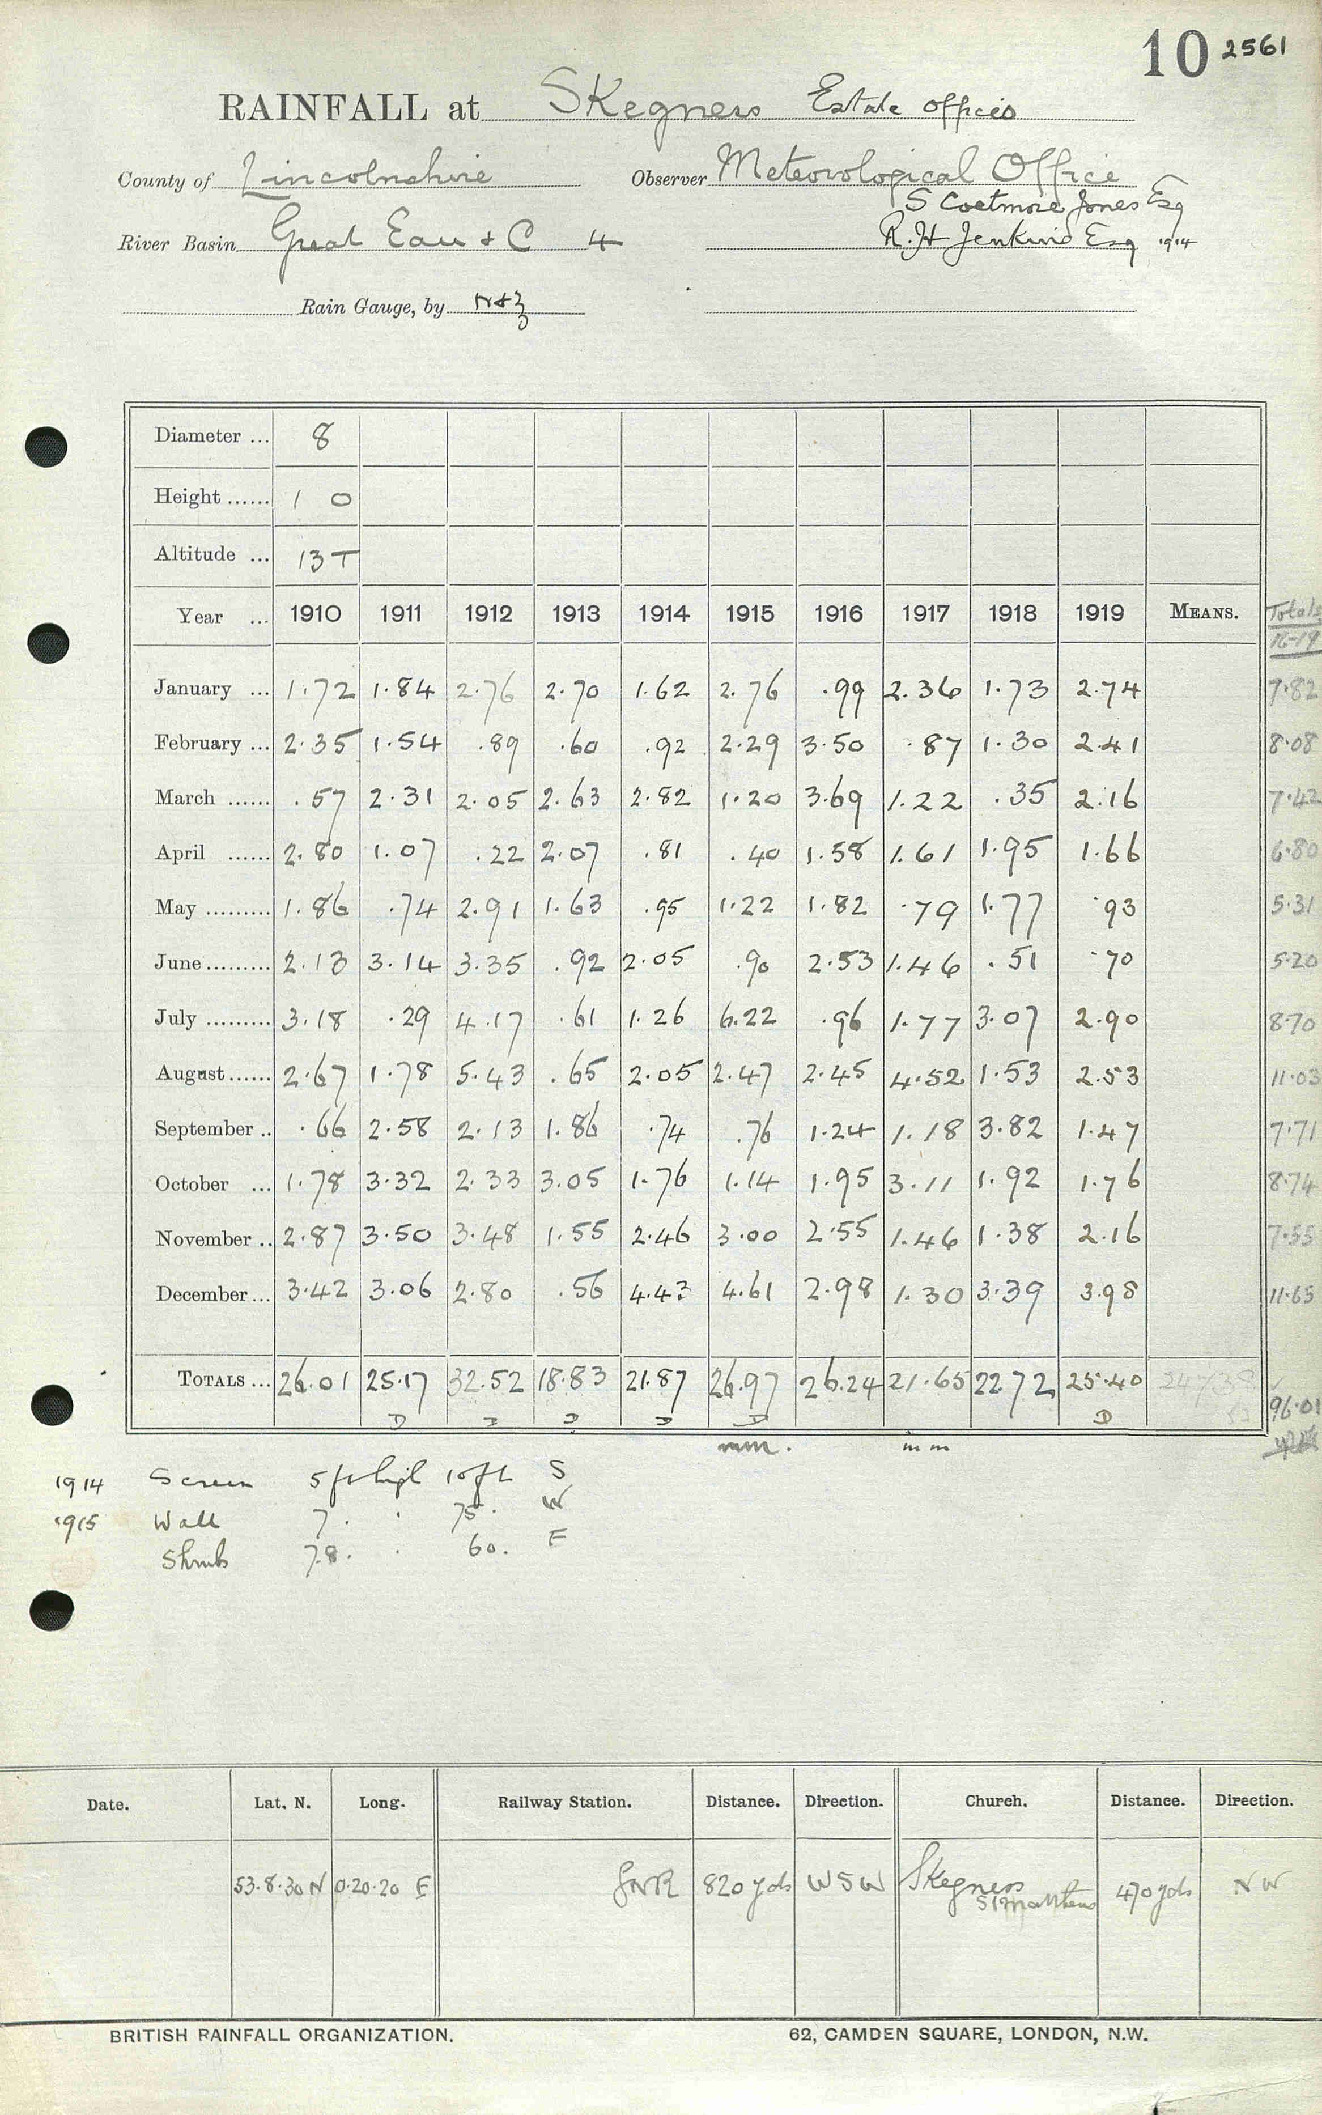 10 2561
RAINFALL at Skegness Estate Offices
County of Lincolnshire Observer Meteorological Office
S Coetmore Jones Esq
River Basin Great Eau & C 4 R. H Jenkins Esq 1914
Rain Gauge, by N&Z
Diameter ... 8
Height ...... 1 0
Altitude ... 13 T
Year ... 1910 1911 1912 1913 1914 1915 1916 1917 1918 1919 MEANS. Totals 16-19
January ... 1.72 1.84 2.76 2.70 1.62 2.76 .99 2.36 1.73 2.74 7.82
February ... 2.35 1.54 .89 .60 .92 2.29 3.50 .87 1.30 2.41 8.08
March ...... .57 2.31 2.05 2.63 2.82 1.20 3.69 1.22 .35 2.16 7.42
April ...... 2.80 1.07 .22 2.07 .81 .40 1.58 1.61 1.95 1.66 6.80
May ......... 1.86 .74 2.91 1.63 .95 1.22 1.82 .79 1.77 .93 5.31
June ......... 2.13 3.14 3.35 .92 2.05 .90 2.53 1.46 .51 .70 5.20
July ......... 3.18 .29 4.17 .61 1.26 6.22 .96 1.77 3.07 2.90 8.70
August ...... 2.67 1.78 5.43 .65 2.05 2.47 2.45 4.52 1.53 2.53 11.03
September .. .66 2.58 2.13 1.86 .74 .76 1.24 1.18 3.82 1.47 7.71
October ... 1.78 3.32 2.33 3.05 1.76 1.14 1.95 3.11 1.92 1.76 8.74
November .. 2.87 3.50 3.48 1.55 2.46 3.00 2.55 1.46 1.38 2.16 7.55
December ... 3.42 3.06 2.80 .56 4.43 4.61 2.98 1.30 3.39 3.98 11.65
TOTALS ... 26.01 25.17 32.52 18.83 21.87 26.97 26.24 21.65 22.72 25.40 247.38 96.01
D D D D D D
mm. mm
1914 Screen 5 ft high 10 ft S
1915 Wall 7 . . 75 . W
Shrub 7.8 . . 60 . E
Date. Lat. N. Long. Railway Station. Distance. Direction. Church. Distance. Direction.
53.8.30 N 0.20.20 E GNR 820 yds WSW Skegness St Matthews 470 yds NW
BRITISH RAINFALL ORGANIZATION. 62, CAMDEN SQUARE, LONDON, N.W.